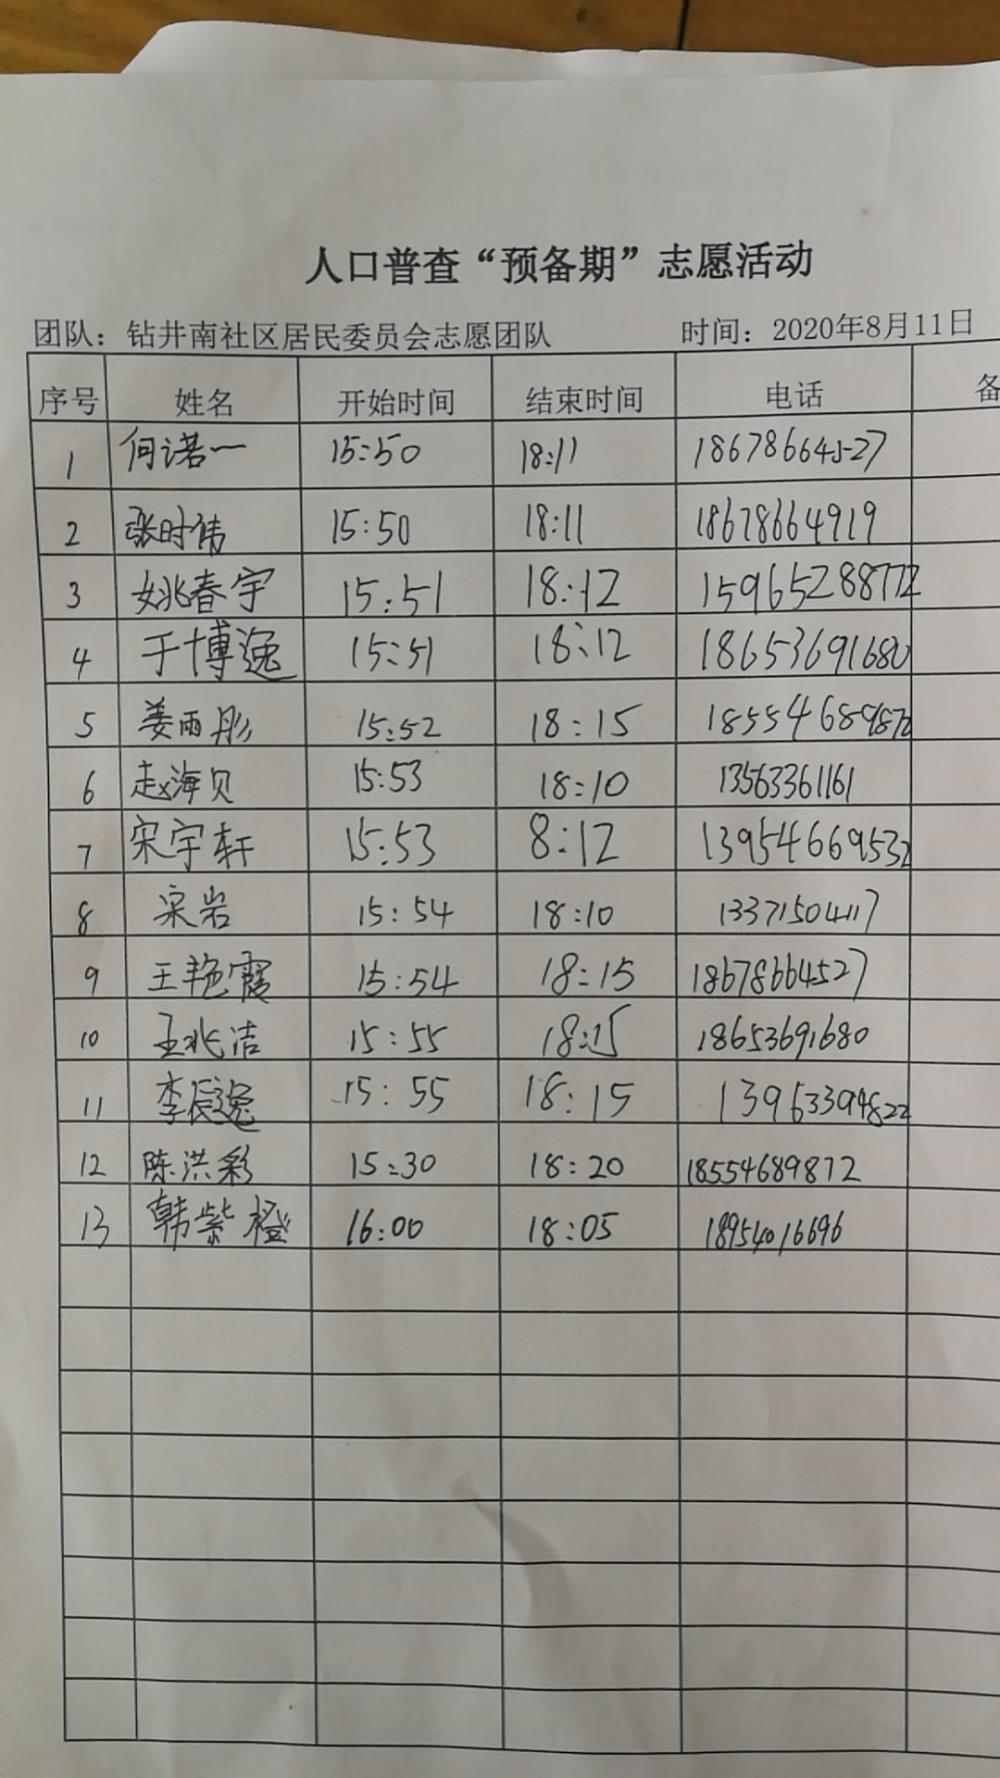 人口普查“预备期”志愿活动
团队：钻井南社区居民委员会志愿团队 时间：2020年8月11日
序号 姓名 开始时间 结束时间 电话 备
1 何诺一 15:50 18:11 18678664527
2 张时伟 15:50 18:11 18678664919
3 姚春宇 15:51 18:12 15965288772
4 于博逸 15:51 18:12 18653691680
5 姜雨彤 15:52 18:15 18554689872
6 赵海贝 15:53 18:10 13563361161
7 宋宇轩 15:53 8:12 13954669532
8 宋岩 15:54 18:10 13371504117
9 王艳霞 15:54 18:15 18678664527
10 王兆洁 15:55 18:15 18653691680
11 李辰逸 15:55 18:15 13963394822
12 陈洪彩 15:30 18:20 18554689872
13 韩紫橙 16:00 18:05 18954016696